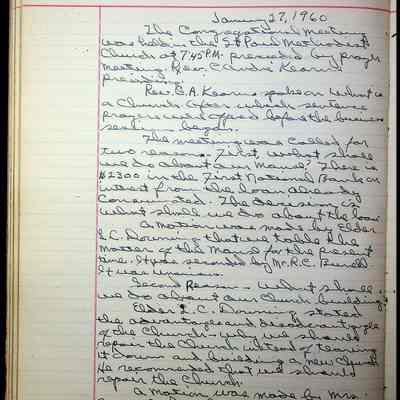 January 27, 1960
The Congregational Meeting
was held in the St Paul Methodist
Church at 7:45 P.M. preceded by prayer
meeting Rev. C. Andre Kearns
presiding.
Rev. C.A. Kearns spoke on What is
a Church after which sentence
prayers were offered before the business
session began.
The meeting was called for
two reasons. First, What shall
we do about our Manse? There is
$2300 in the First National Bank on
interest from the loan already
consumated. The decision is
what shall we do about the loan.
A motion was made by Elder
L.C. Downing that we table the
matter of the Manse for the present
time. It was seconded by Mr. R.C.
It was
Second Reason - What shall
we do about our Church building?
Elder L.C. Downing stated
the advantages and
of the Church - why we should
repair the Church instead of tearing
it down and building a new Church
He recommended that we should
repair the Church.
A motion was made by Mrs.